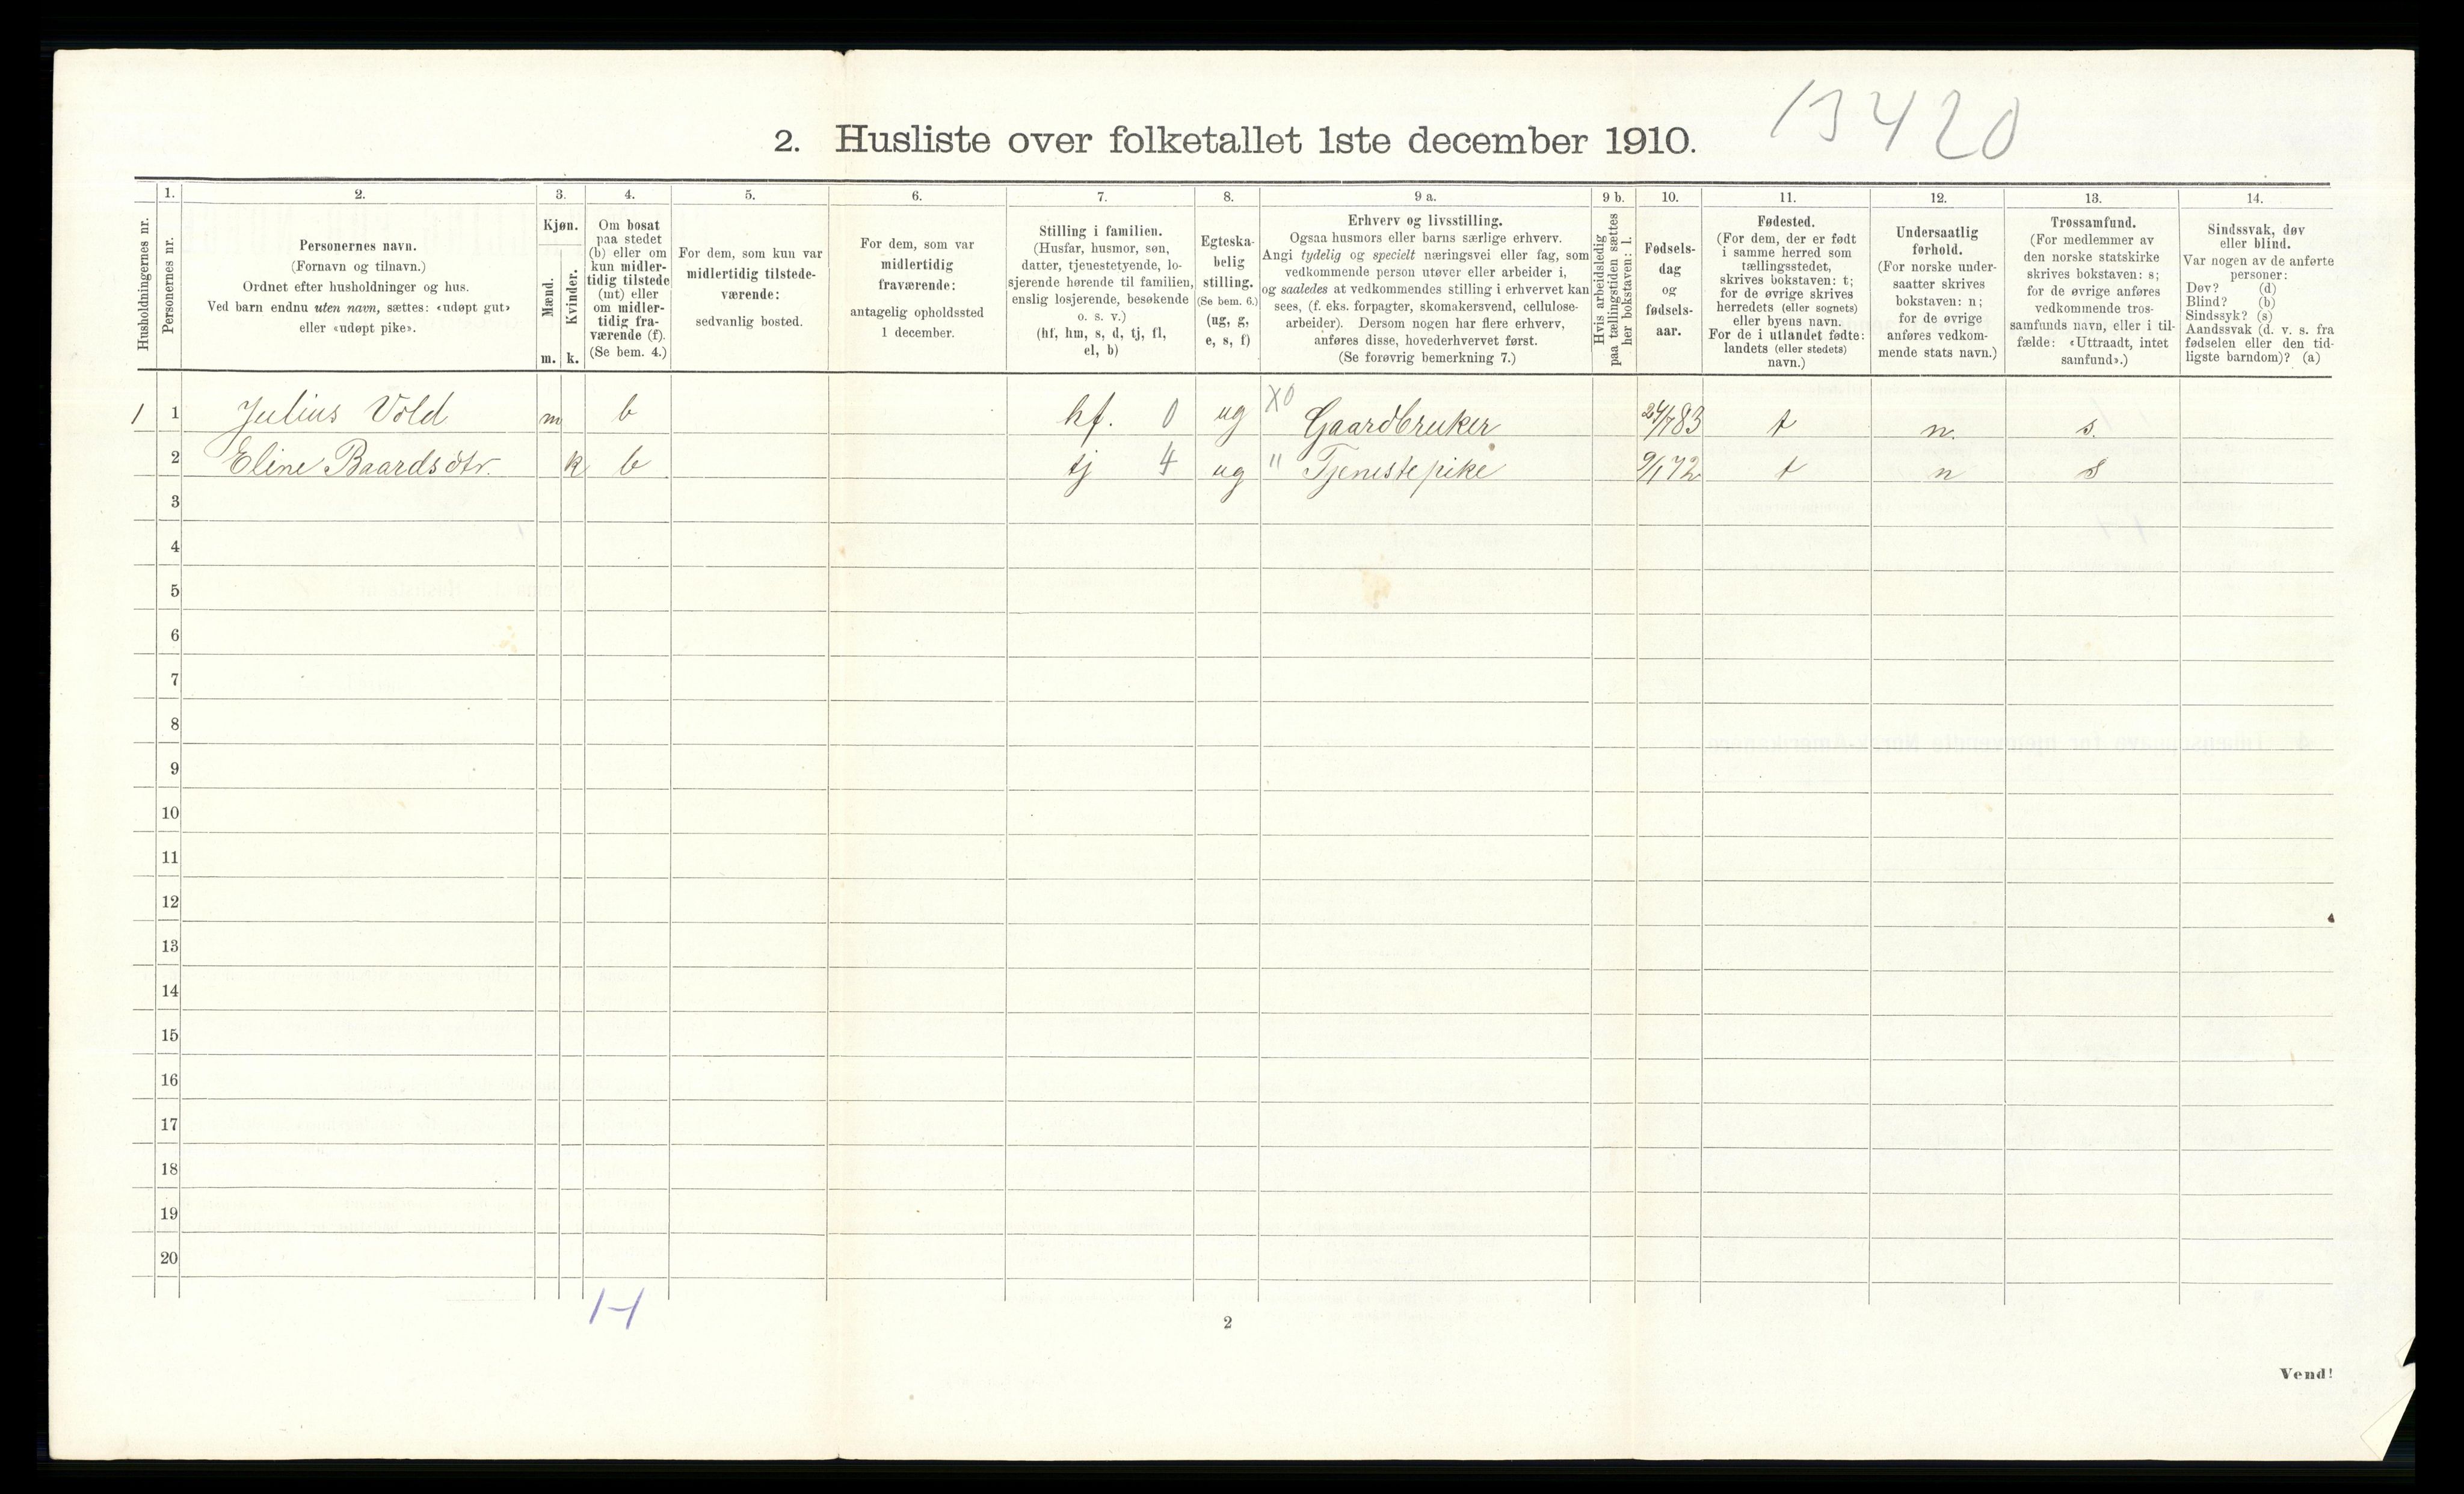 13420
2. Husliste over folketallet 1ste december 1910.
Husholdningernes nr.
1.
Personernes nr.
2.
Personernes navn.
(Fornavn og tilnavn.)
Ordnet efter husholdninger og hus.
Ved barn endnu uten navn, sættes: «udøpt gut»
eller «udøpt pike».
3.
Kjøn.
Mænd.
Kvinder.
m. k.
4.
Om bosat
paa stedet
(b) eller om
kun midler-
tidig tilstede
(mt) eller
om midler-
tidig fra-
værende (f).
(Se bem. 4.)
5.
For dem, som kun var
midlertidig tilstede-
værende:
sedvanlig bosted.
6.
For dem, som var
midlertidig
fraværende:
antagelig opholdssted
1 december.
7.
Stilling i familien.
(Husfar, husmor, søn,
datter, tjenestetyende, lo-
sjerende hørende til familien,
enslig losjerende, besøkende
o. s. v.)
(hf, hm, s, d, tj, fl,
el, b)
8.
Egteska-
belig
stilling.
(Se bem. 6.)
(ug, g,
e, s, f)
9 a.
Erhverv og livsstilling.
Ogsaa husmors eller barns særlige erhverv.
Angi tydelig og specielt næringsvei eller fag, som
vedkommende person utøver eller arbeider i,
og saaledes at vedkommendes stilling i erhvervet kan
sees, (f. eks. forpagter, skomakersvend, cellulose-
arbeider). Dersom nogen har flere erhverv,
anføres disse, hovederhvervet først.
(Se forøvrig bemerkning 7.)
9 b.
Hvis arbeidsledig
paa tællingstiden sættes
her bokstaven: l.
10.
Fødsels-
dag
og
fødsels-
aar.
11.
Fødested.
(For dem, der er født
i samme herred som
tællingsstedet,
skrives bokstaven: t;
for de øvrige skrives
herredets (eller sognets)
eller byens navn.
For de i utlandet fødte:
landets (eller stedets)
navn.)
12.
Undersaatlig
forhold.
(For norske under-
saatter skrives
bokstaven: n;
for de øvrige
anføres vedkom-
mende stats navn.)
13.
Trossamfund.
(For medlemmer av
den norske statskirke
skrives bokstaven: s;
for de øvrige anføres
vedkommende tros-
samfunds navn, eller i til-
fælde: «Uttraadt, intet
samfund».)
14.
Sindssvak, døv
eller blind.
Var nogen av de anførte
personer:
Døv? (d)
Blind? (b)
Sindssyk? (s)
Aandssvak (d. v. s. fra
fødselen eller den tid-
ligste barndom)? (a)
1 1 Julius Vold m b hf. 0 ug X0 Gaardbruker 24/7 83 t n. s.
2 Eline Baardsdtr. k b tj 4 ug " Tjenestepike 9/1 72 t n s
3
4
5
6
7
8
9
10
11
12
13
14
15
16
17
18
19
20
1-1
2
Vend!